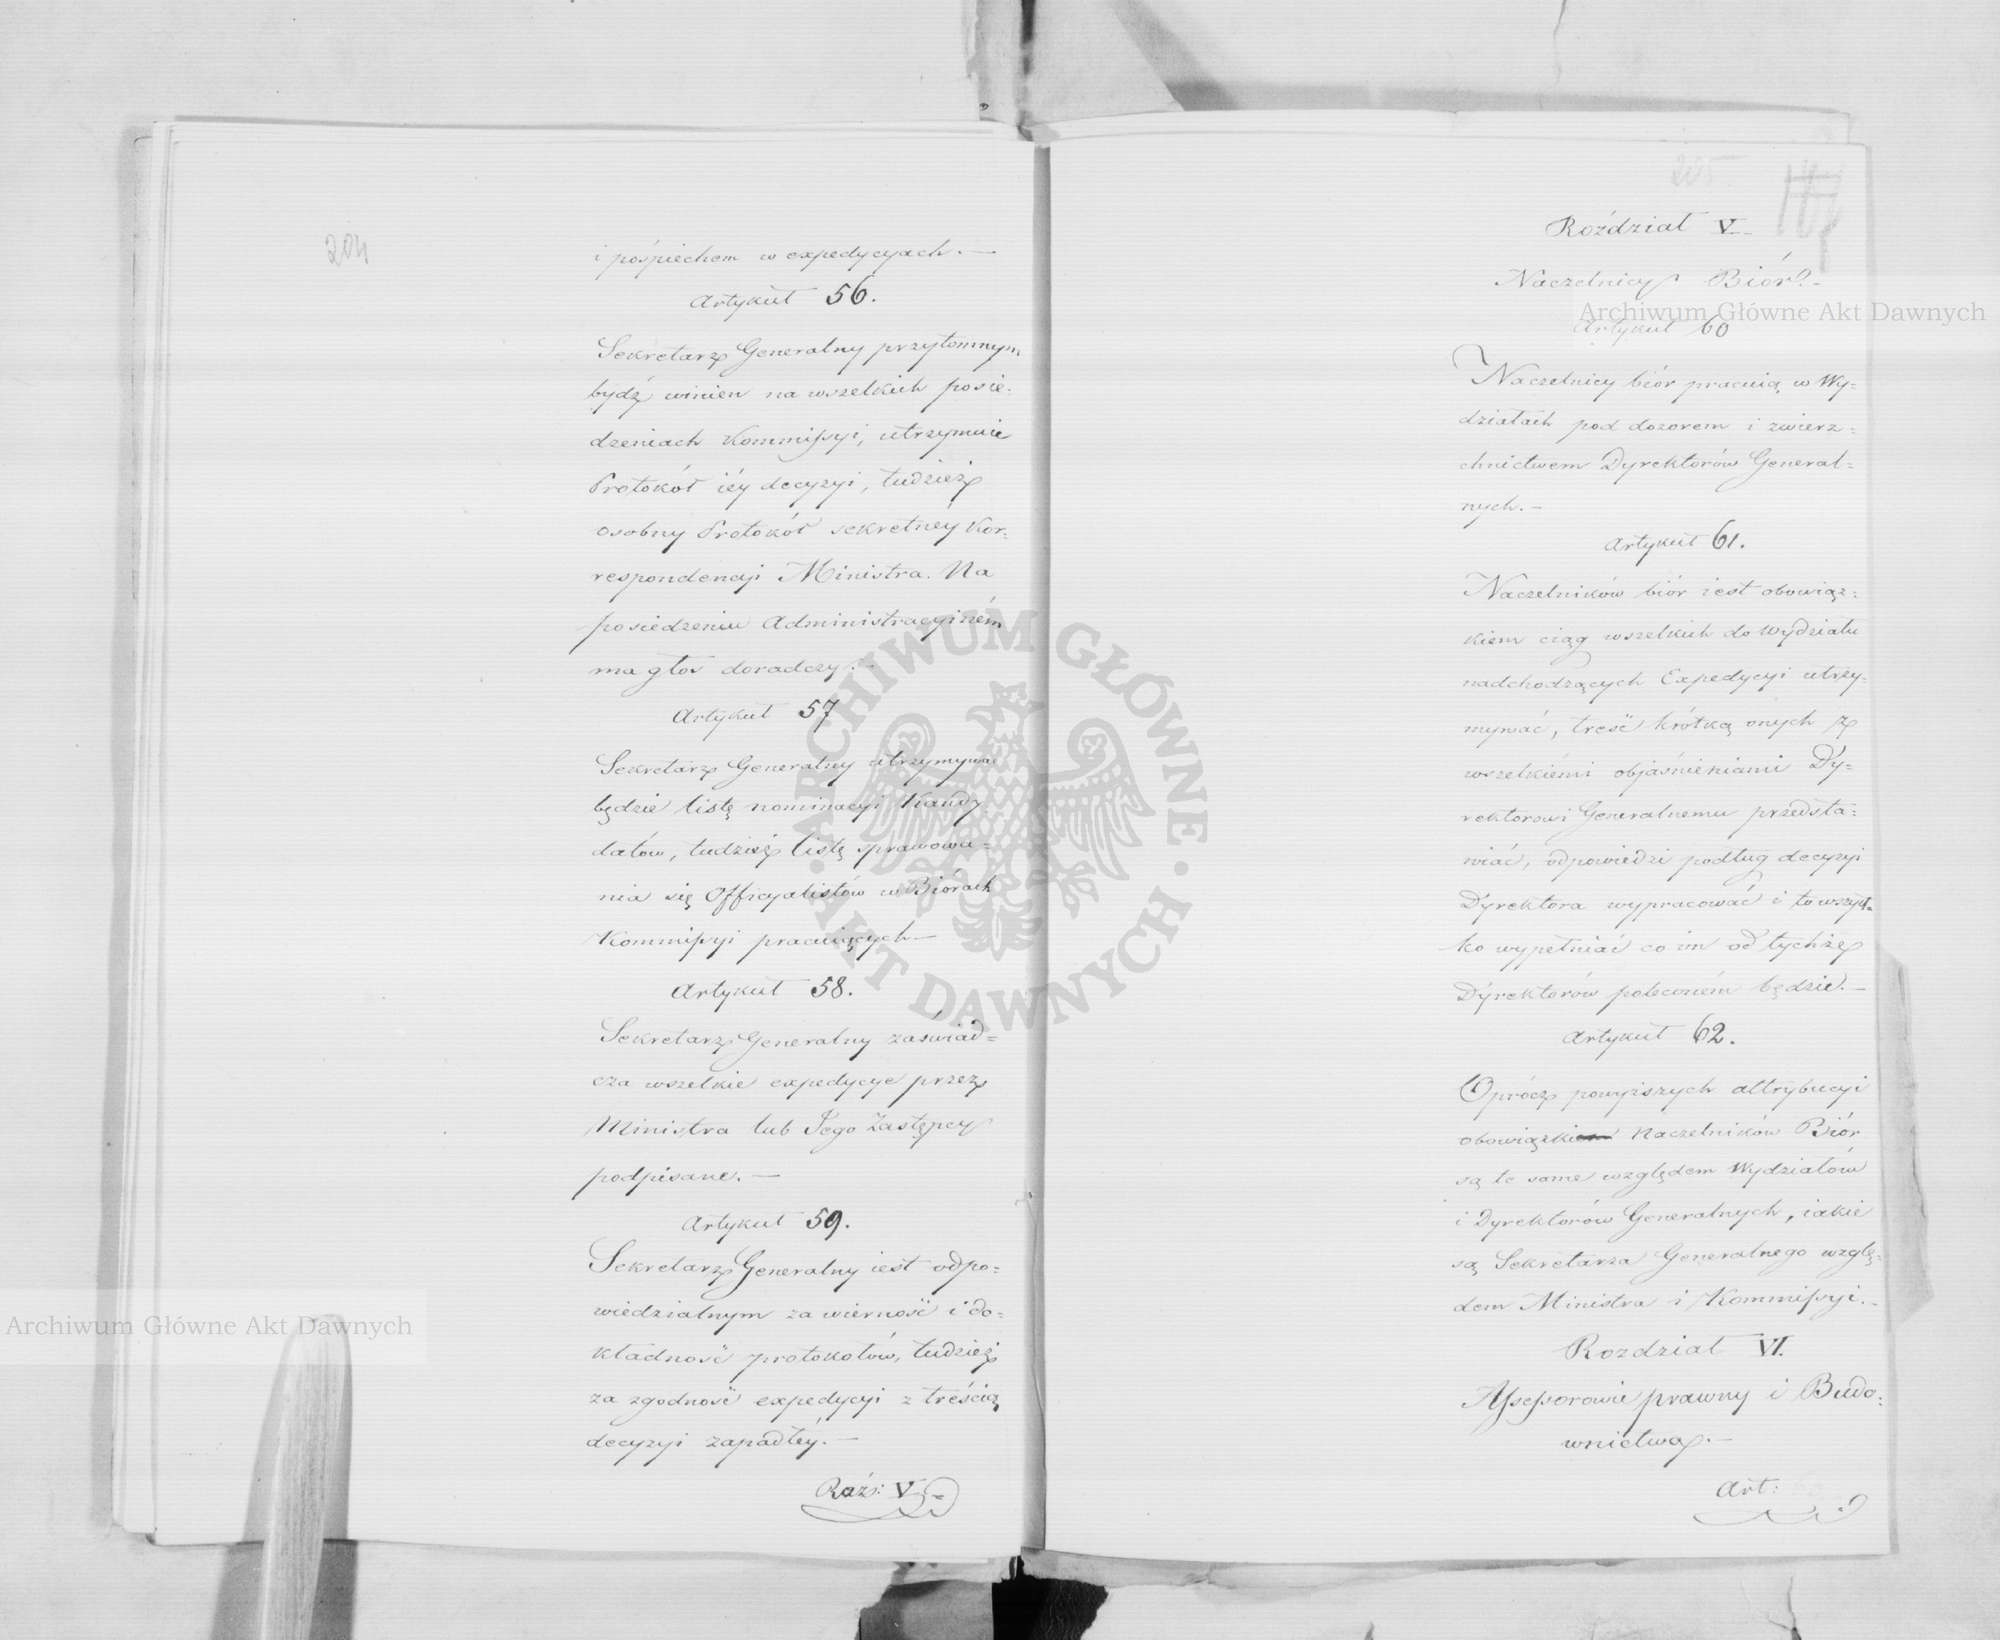 204
i pośpiechem w expedycyach. —
Artykuł 56.
Sekretarz Generalny przytomnym
bydź winien na wszelkich posie=
dzeniach Kommissyi, utrzymuie
Protokół iéy decyzyi, tudzież
osobny Protokół sekretnéy Kor=
respondencyi Ministra. Na
posiedzeniu Administracyiném
ma głos doradczy. —
Artykuł 57
Sekretarz Generalny utrzymywać
będzie listę nominacyi Kandy
datów, tudzież listę sprawowa=
nia się Officyalistów w Biórach
Kommissyi pracuiących —
Artykuł 58.
Sekretarz Generalny zaświad=
cza wszelkie expedycye przez
Ministra lub Jego Zastępcę
podpisane. —
Artykuł 59.
Sekretarz Generalny iest odpo=
wiedzialnym za wierność i do=
kładność protokołów, tudzież
za zgodność expedycyi z treścią
decyzyi zapadłéy. —
Roź: V. =
205
Roździał V. —
Naczelnicy Biór. —
Artykuł 60
Naczelnicy biór pracuią w Wy=
działach pod dozorem i zwierz=
chnictwem Dyrektorów General=
nych. —
Artykuł 61.
Naczelników biór iest obowiąz=
kiem ciąg wszelkich do Wydziału
nadchodzących Expedycyi utrzy=
mywać, treść krótką onych z
wszelkiémi objaśnieniami Dy=
rektorowi Generalnemu przedsta=
wiać, odpowiedzi podług decyzyi
Dyrektora wypracować i to wszyst=
ko wypełniać co im od tychże
Dyrektorów poleconém będzie. —
Artykuł 62.
Oprócz powyższych attrybucyi
obowiązki Naczelników Biór
są te same względem Wydziałów
i Dyrektorów Generalnych, iakie
są Sekretarza Generalnego wzglę=
dem Ministra i Kommissyi. —
Rozdział VI.
Assessorowie prawny i Budo=
wnictwa. —
Art:
Archiwum Główne Akt Dawnych
Archiwum Główne Akt Dawnych
ARCHIWUM GŁÓWNE · AKT DAWNYCH ·